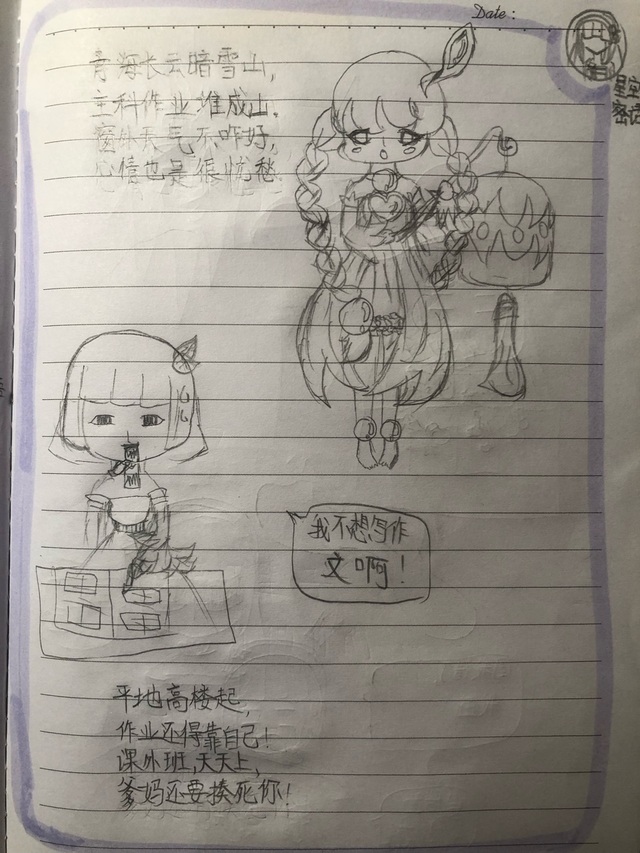 Date:
星空
密语
青海长云暗雪山,
主科作业堆成山。
窗外天气不咋好,
心情也是很忧愁.
我不想写作
文啊!
平地高楼起,
作业还得靠自己!
课外班,天天上,
爹妈还要揍死你!